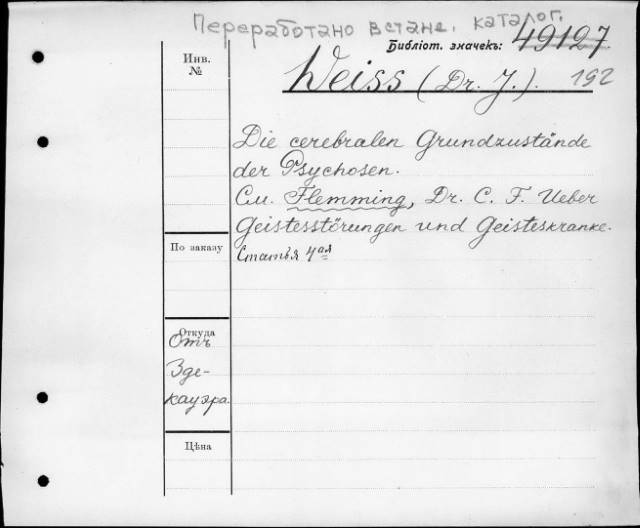 Переработано в стане. каталог.
Библіот. значекъ: 49127
Инв. №
Weiss (Dr. J.). 192
Die cerebralen Grundzustände
der Psychosen.
См. Flemming, Dr. C. F. Ueber
Geistesstörungen und Geisteskranke.
По заказу
Статья 4ая
Откуда
Отъ
Зде-
кауэра.
Цѣна